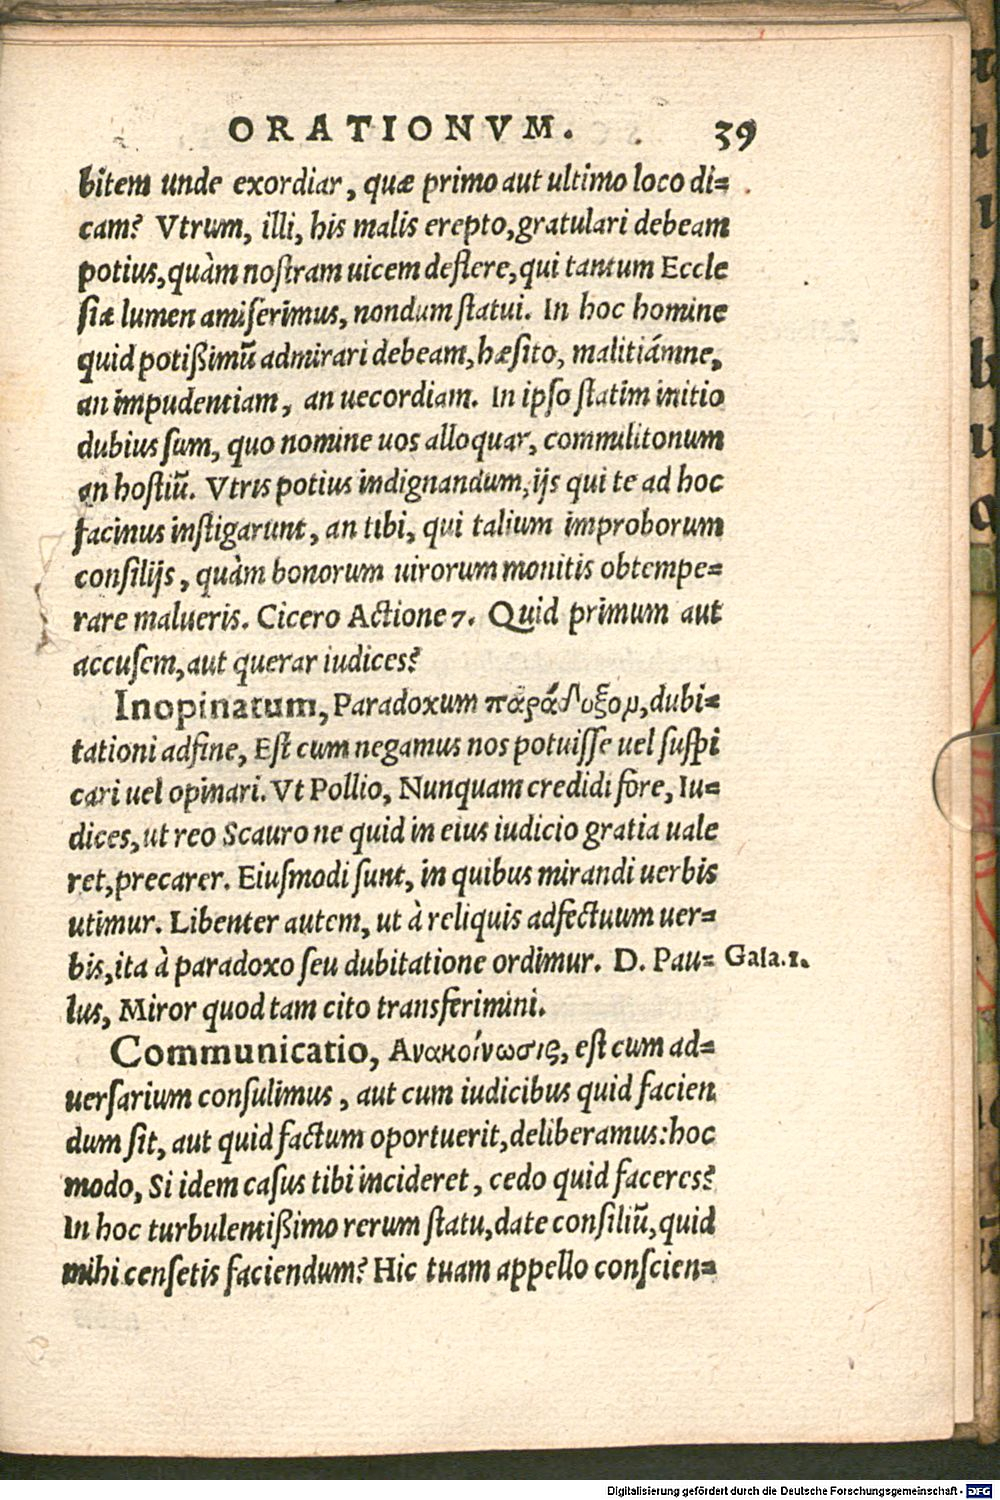 ORATIONVM. 39
bitem unde exordiar, quæ primo aut ultimo loco di=
cam? Vtrum, illi, his malis erepto, gratulari debeam
potius, quàm nostram uicem deflere, qui tantum Eccle
siæ lumen amiserimus, nondum statui. In hoc homine
quid potißimũ admirari debeam, hæsito, malitiámne,
an impudentiam, an uecordiam. In ipso statim initio
dubius sum, quo nomine uos alloquar, commilitonum
an hostiũ. Vtris potius indignandum, ijs qui te ad hoc
facinus instigarunt, an tibi, qui talium improborum
consilijs, quàm bonorum uirorum monitis obtempe=
rare malueris. Cicero Actione 7. Quid primum aut
accusem, aut querar iudices?
Inopinatum, Paradoxum παράδοξον, dubi=
tationi adfine, Est cum negamus nos potuisse uel suspi
cari uel opinari. Vt Pollio, Nunquam credidi fore, Iu=
dices, ut reo Scauro ne quid in eius iudicio gratia uale
ret, precarer. Eiusmodi sunt, in quibus mirandi uerbis
utimur. Libenter autem, ut à reliquis adfectuum uer=
bis, ita à paradoxo seu dubitatione ordimur. D. Pau= Gala.1.
lus, Miror quod tam cito transferimini.
Communicatio, Ανακοίνωσις, est cum ad=
uersarium consulimus, aut cum iudicibus quid facien
dum sit, aut quid factum oportuerit, deliberamus: hoc
modo, Si idem casus tibi incideret, cedo quid faceres?
In hoc turbulentißimo rerum statu, date consiliũ, quid
mihi censetis faciendum? Hic tuam appello conscien=
Digitalisierung gefördert durch die Deutsche Forschungsgemeinschaft - DFG